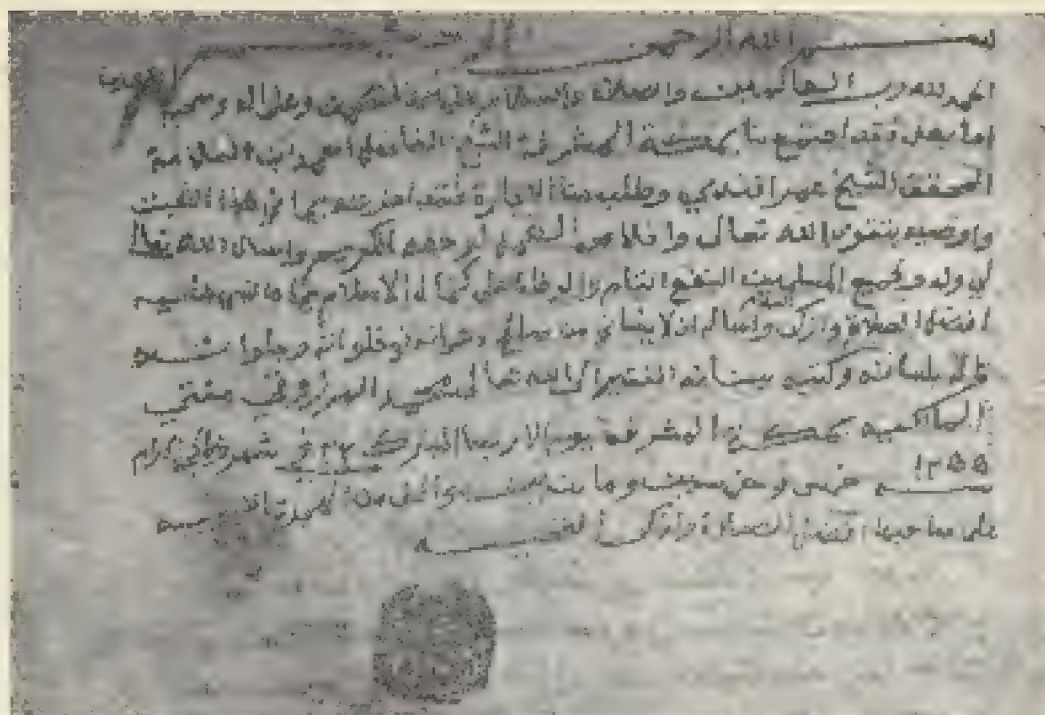 بسم الله الرحمن الرحيم
الحمد لله رب العالمين والصلاة والسلام على وعلى اله وصحبه اجمعين
اما بعد فقد اجتمع بنا بمكة المشرفة الشيخ الفاضل ابن العالم
المحقق الشيخ عمر افندي وطلب منا الاجازة فقد اجزته بها في هذا
واوصيه بتقوى الله تعالى والاخلاص لوجهه الكريم واسال الله تعالى
لي وله ولجميع المسلمين النفع التام والوفاة على كمال الاسلام
افضل الصلاة وازكى السلام واساله ان لا ينساني من صالح دعواته في خلواته وجلواته
قاله بلسانه وكتبه ببنانه الفقير الى الله تعالى محمد المرزوقي مفتي
المالكية بمكة المشرفة يوم الاربعا المبارك ٢٢ في شهر
١٢٥٥ سنة خمس وخمسين ومايتين والف من الهجرة
على صاحبها افضل الصلاة وازكى التحية